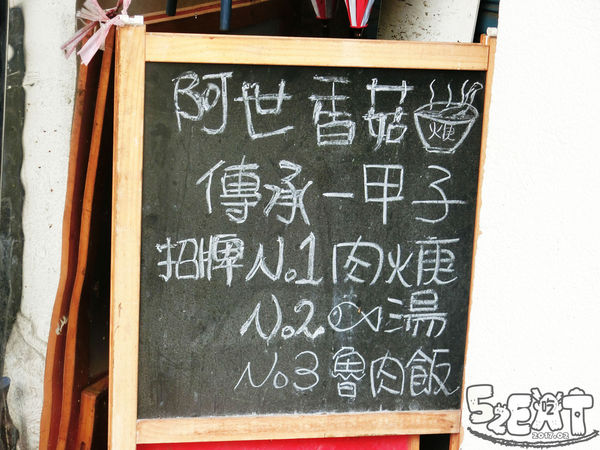 阿世香菇焿
傳承一甲子
招牌No.1肉焿
No.2湯
No3魯肉飯
52EAT
2017.02